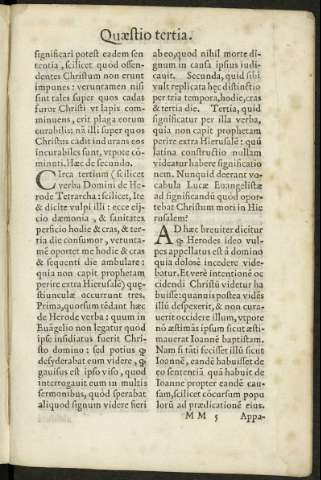 Quæstio tertia.
significari potest eadem sen
tentia, scilicet quod offen-
dentes Christum non erunt
impunes: veruntamen nisi
sint tales super quos cadat
furor Christi vt lapis com-
minuens, erit plaga eorum
curabilis: nā illi super quos
Christus cadit indurans eos
incurabiles sunt, vtpote cō-
minuti. Hæc de secundo.
CIrca tertium (scilicet
verba Domini de He-
rode Tetrarcha: scilicet, Ite
& dicite vulpi illi: ecce eij-
cio dæmonia, & sanitates
perficio hodie & cras, & ter-
tia die consumor, verunta-
mē oportet me hodie & cras
& sequenti die ambulare:
quia non capit prophetam
perire extra Hierusalē) quę-
stiunculæ occurrunt tres.
Prima, quorsum tēdant hæc
de Herode verba: quum in
Euāgelio non legatur quod
ipse insidiatus fuerit Chri-
sto domino: sed potius ꝙ
desyderabat eum videre, ꝙ
gauisus est ipso viso, quod
interrogauit eum in multis
sermonibus, quòd sperabat
aliquod signum videre fieri
ab eo, quod nihil morte di-
gnum in causa ipsius iudi-
cauit. Secunda, quid sibi
vult replicata hęc distinctio
per tria tempora, hodie, cras
& tertia die. Tertia, quid
significatur per illa verba,
quia non capit prophetam
perire extra Hierusalē: quū
latina constructio nullam
videatur habere significatio
nem. Nunquid deerant vo-
cabula Lucæ Euangelistæ
ad significandū quod opor-
tebat Christum mori in Hie
rusalem?
AD hæc breuiter dicitur
ꝙ Herodes ideo vul-
pes appellatus est à domino
quia dolosè incedere vide-
batur. Et verè intentionē oc
cidendi Christū videtur ha
buisse: quanuis postea vidēs
illū despexerit, & non cura-
uerit occidere illum, vtpote
nō æstimās ipsum sicut æsti-
mauerat Ioannē baptistam.
Nam si tāti fecisset illū sicut
Ioannē, eandē habuisset de
eo sententiā quā habuit de
Ioanne propter eandē cau-
sam, scilicet cōcursum popu
lorū ad prædicationē eius.
MM 5 Appa-